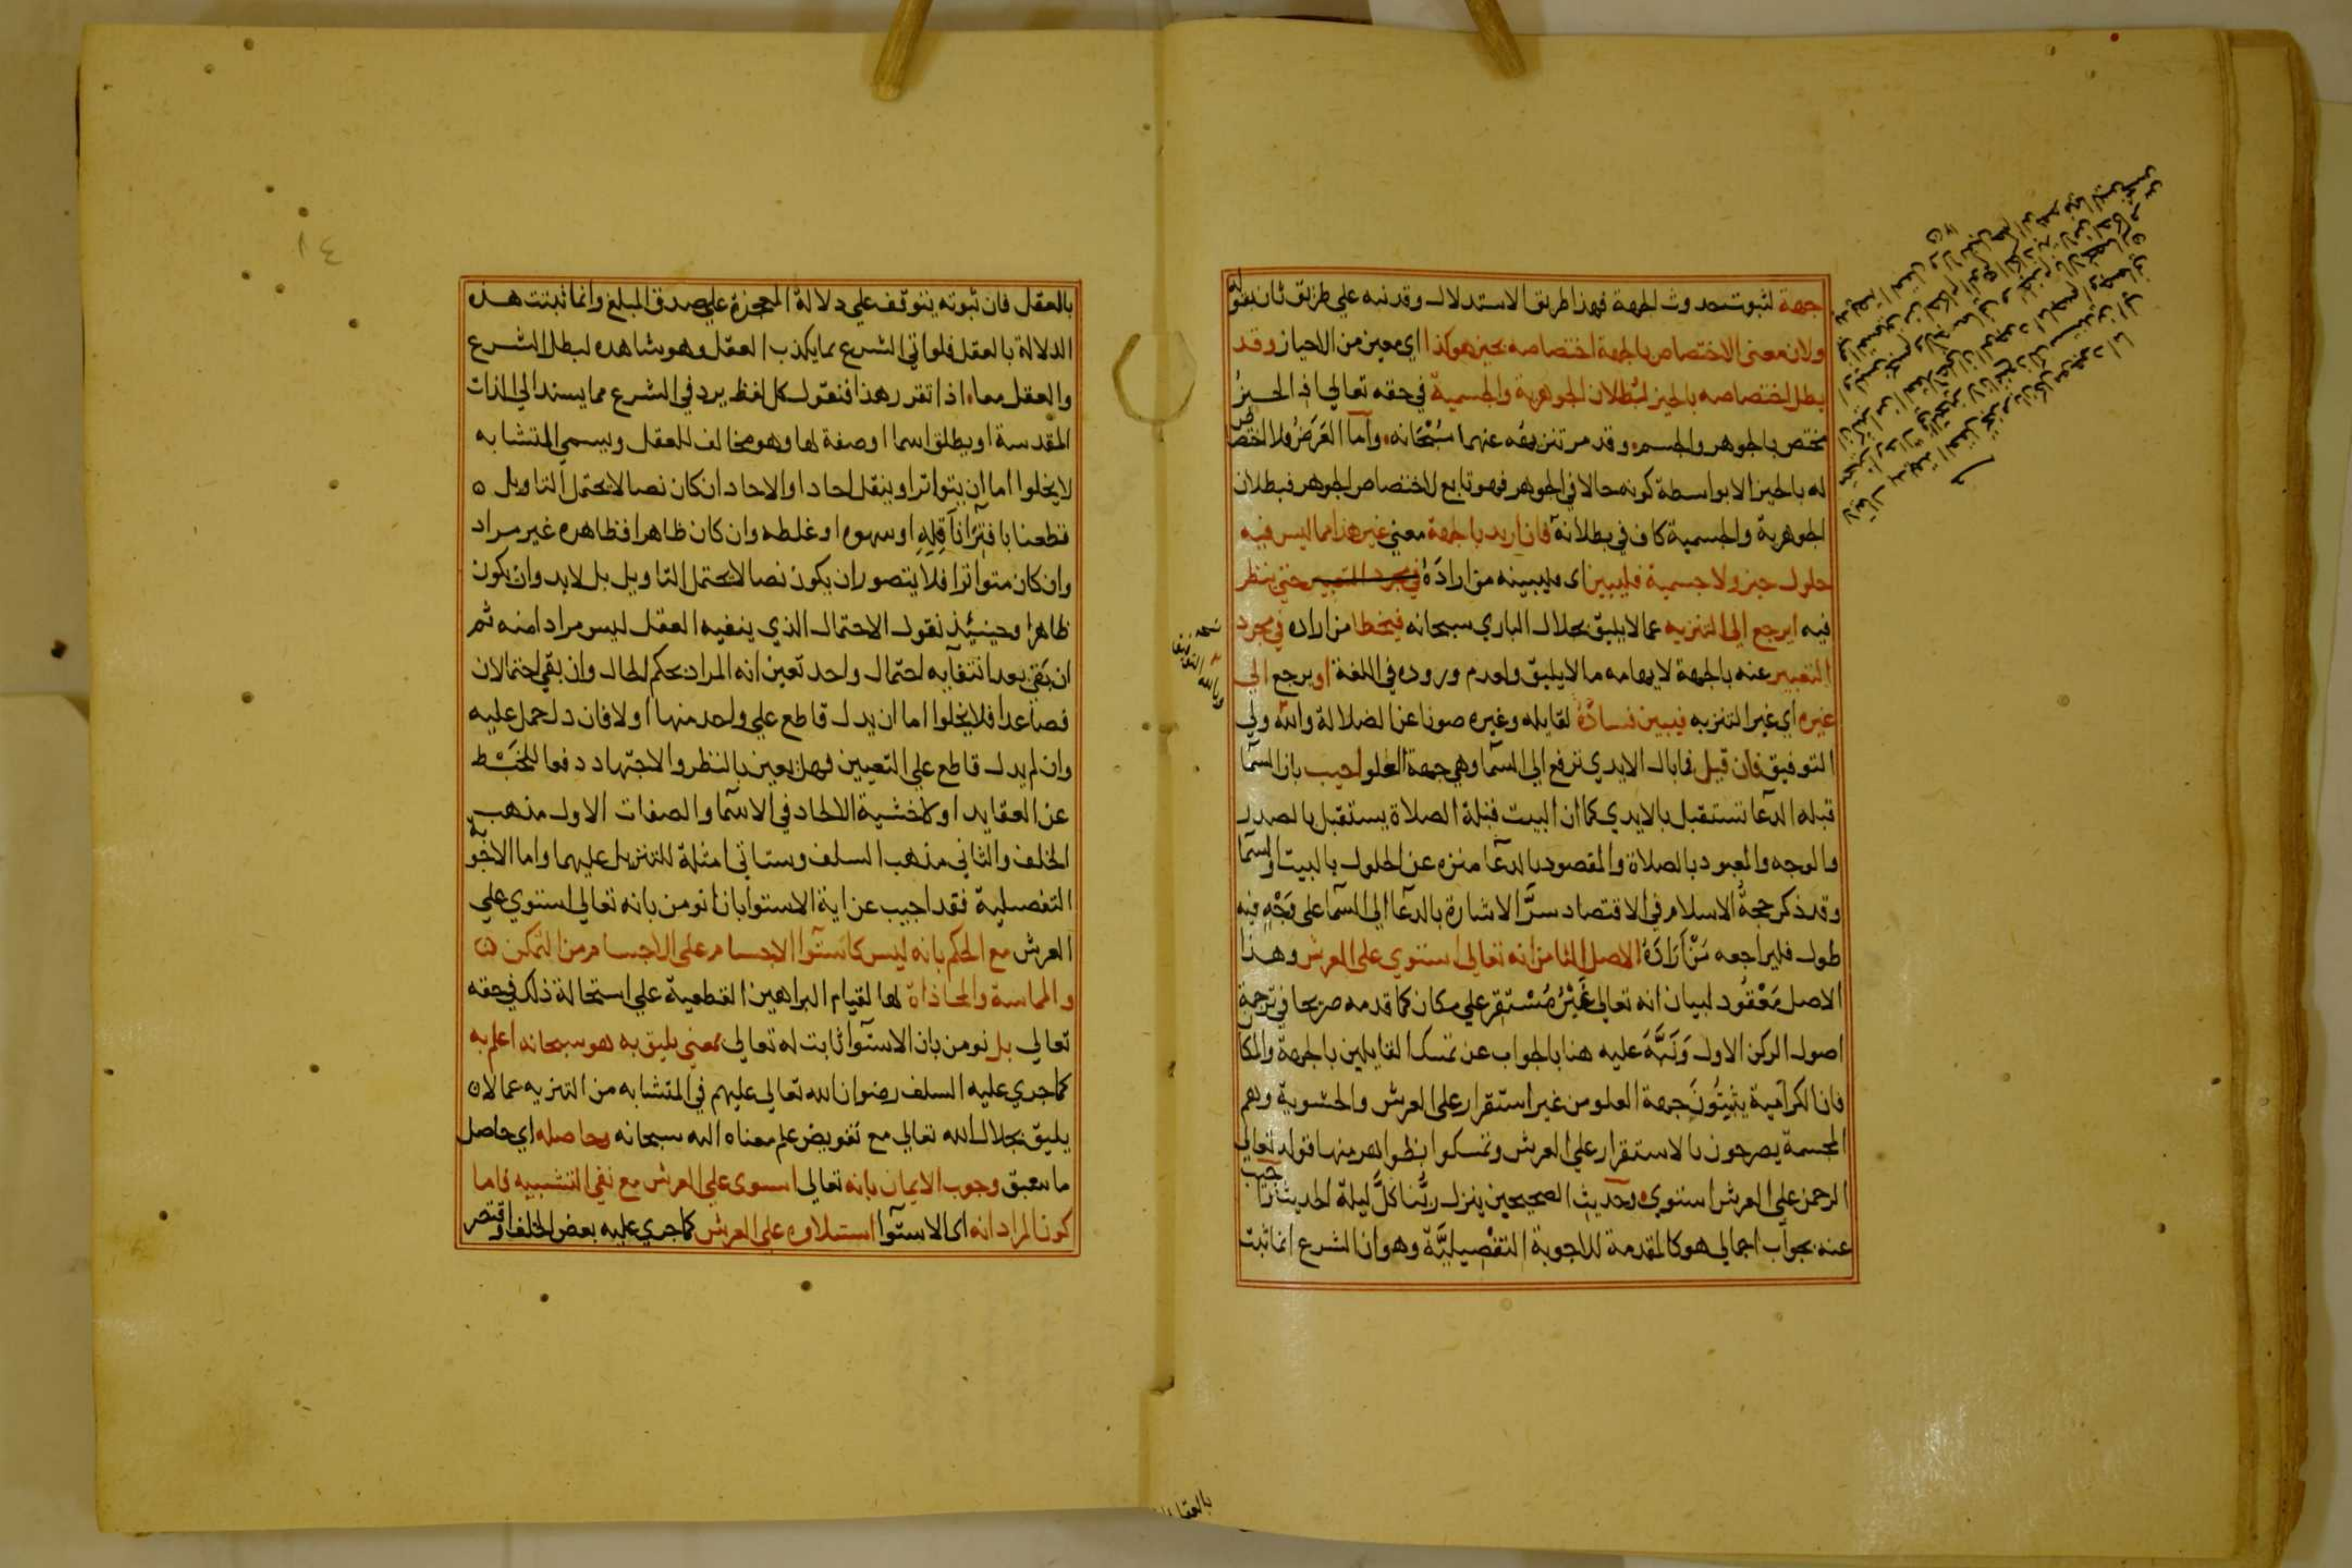 جهة لثبوت حدوث الجهة فهذا طريق الاستدلال وقد نبه علي طريق ثان بقوله
ولان معني الاختصاص بالجهة اختصاصه بحيز هو كذا اي معين من الاحياز وقد
بطل اختصاصه بالحيز لبطلان الجوهرية والجسمية في حقه تعالي اذ الحيز
مختص بالجوهر والجسم وقد مر تنزيهه عنهما سُبْحَانه وأما العَرَضُ فلا اختصاص
له بالحيز الا بواسطة كونه حالا في الجوهر فهو تابع لاختصاص الجوهر فبطلان
الجوهرية والجسمية كاف في بطلانه فان اريد بالجهة معني غير هذا مما ليس فيه
حلول حيز ولا جسمية فليبين اى فليبينه من ارادَهُ في مجرد التعبير حتي ينظر
فيه ايرجع الي التنزيه عما لا يليق بجلال الباري سبحانه فيخطا من اراده في مجرد
التعبير عنه بالجهة لايهامه ما لا يليق ولعدم وروده في اللغة او يرجع الي
غيره اي غير التنزيه فيبين فسادُهُ لقايله وغيره صونا عن الضلالة والله ولي
التوفيق فان قيل فما بال الايدي ترفع الي السما وهي جهة العلو اجيب بان السما
قبله الدعا تستقبل بالايدي كما ان البيت قبلة الصلاة يستقبل بالصدر
والوجه والمعبود بالصلاة والمقصود بالدعا منزه عن الحلول بالبيت والسما
وقد ذكر حجةُ الاسلام في الاقتصاد سرَّ الاشارة بالدعا الي السما علي وَجْهٍ فيه
طول فليراجعه مَنْ أَرَادَهُ الاصل الثامن انه تعالي استوي علي العرش وهذا
الاصل مَعْقُود لبيان انه تعالي غَيْرُ مُسْتقر علي مكان كما قدمه صريحا في ترجمة
اصول الركن الاول وَنَبَّهَ عليه هنا بالجواب عن تمسك القايلين بالجهة والمكان
فان الكرامية يثبِتُونَ جهة العلو من غير استقرار علي العرش والحشوية وهم
المجسمة يصرحون بالاستقرار علي العرش وتمسكوا بظواهر منها قوله تعالي
الرحمن علي العرش استوي وحديث الصحيحين ينزل ربُّنا كلَّ ليلة الحديث واجيب
عنه بجواب اجمالي هو كالمقدمة للاجوبة التفْصِيليَّة وهو ان الشرع انما ثبت
بالعقل فان ثبوته يتوقف علي دلالة المعجزة علي صدق المبلغ وانما ثبتت هذه
الدلالة بالعقل فلو اتي الشرع بما يكذب العقل وهو شاهده لبطل الشرع
والعقل معا اذا تقرر هذا فنقول كل لفظ يرد في الشرع مما يسند الي الذات
المقدسة او يطلق اسما او صفة لها وهو مخالف للعقل ويسمي المتشابه
لا يخلوا اما ان يتواترا او ينقل احادا والاحاد ان كان نصا لا يحتمل التاويل
قطعنا بافتِرَا نَاقِلِهِ او سهوه او غلطه وان كان ظاهرا فظاهره غير مراد
وان كان متواترا فلا يتصور ان يكون نصا لا يحتمل التاويل بل لابد وان يكون
ظاهرا وحينئذ نقول الاحتمال الذي ينفيه العقل ليس مرادا منه ثم
ان بَقي بعد انتفآيه احتمال واحد تعين انه المراد بحكم الحال وان بقي احتمالان
فصاعدا فلا يخلوا اما ان يدل قاطع علي واحد منهما او لا فان دل حمل عليه
وان لم يدل قاطع علي التعيين فهل يعين بالنظر والاجتهاد دفعا للخَبْط
عن العقايد او لا خشية الالحاد في الاسما والصفات الاول مذهب
الخلف والثاني مذهب السلف وستاتي امثلة للتنزيل عليهما واما الاجوبة
التفصيلية فقد اجيب عن اية الاستوا بانا نومن بانه تعالي استوي علي
العرش مع الحكم بانه ليس كاستوا الاجسام علي الاجسام من التمكن
والمماسة والمحاذاة لها لقيام البراهين القطعية علي استحالة ذلك في حقه
تعالي بل نومن بان الاستوآ ثابت له تعالي بمعني يليق به هو سبحانه اعلم به
كما جري عليه السلف رضوان الله تعالي عليهم في المتشابه من التنزيه عما لا
يليق بجلال الله تعالي مع تفويض علم معناه اليه سبحانه وحاصله اي حاصل
ما سبق وجوب الايمان بانه تعالي استوى علي العرش مع نفي التشبيه فاما
كون المراد انه اى الاستوآ استيلاوه علي العرش كما جري عليه بعض الخلف واقتصر
١٤